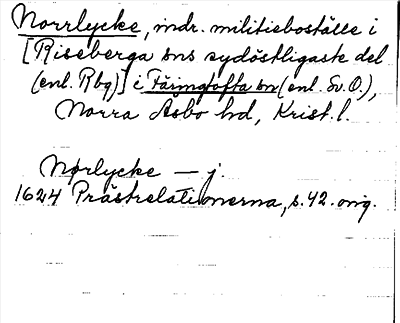 Norrlycke, indr. militieboställe i
[Riseberga sns sydöstligaste del
(enl. Rbg)] i Färingtofta sn (enl. Sv.O.),
Norra Åsbo hd, Krist. l.
Nørlycke — j.
1624 Prästrelationerna, s. 42. orig.